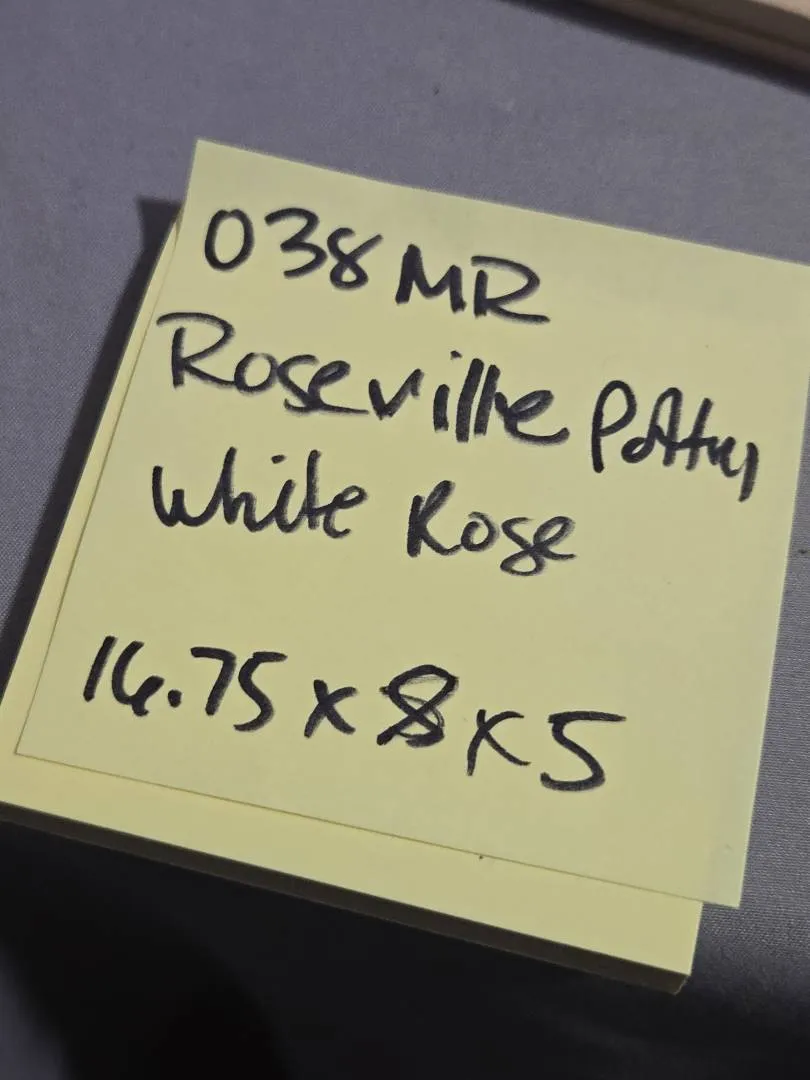 038 MR
Roseville Pottery
White Rose
16.75 x 8 x 5